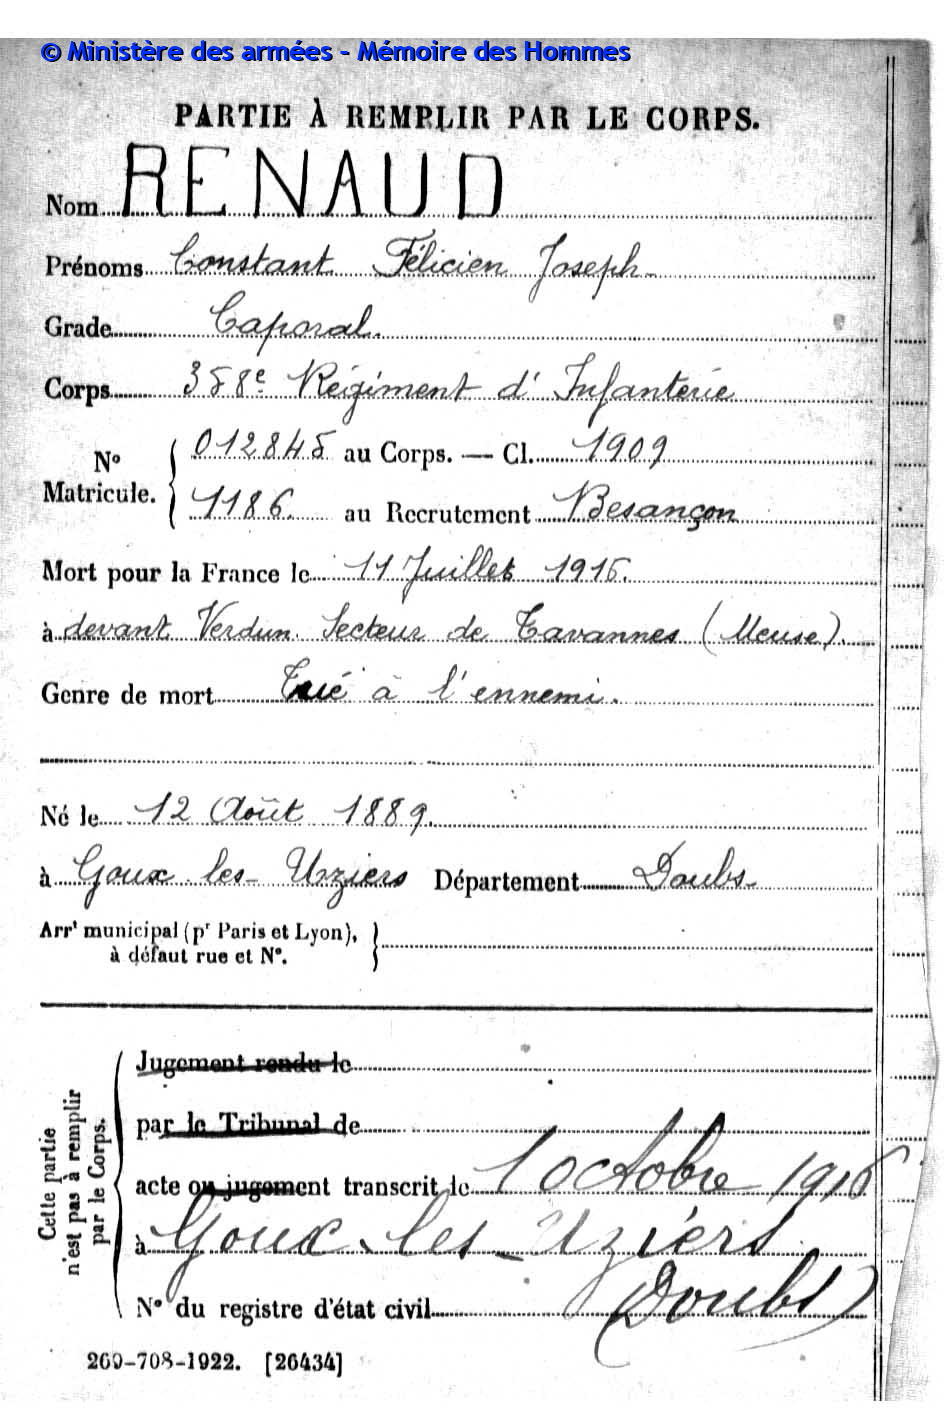 © Ministère des armées - Mémoire des Hommes
PARTIE À REMPLIR PAR LE CORPS.
Nom RENAUD
Prénoms Constant Félicien Joseph
Grade Caporal.
Corps 358e Régiment d'Infanterie
No Matricule. { 012845 au Corps. — Cl. 1909
1186. au Recrutement Besançon
Mort pour la France le 11 Juillet 1916.
à devant Verdun. Secteur de Tavannes (Meuse).
Genre de mort Tué à l'ennemi.
Né le 12 Août 1889.
à Goux les-Urziers Département Doubs
Arrt municipal (pr Paris et Lyon),
à défaut rue et No.
Cette partie n'est pas à remplir par le Corps.
Jugement rendu le
par le Tribunal de
acte ou jugement transcrit le 1 octobre 1916
à Goux-les-Uziers
(Doubs)
No du registre d'état civil
269-708-1922. [26434]